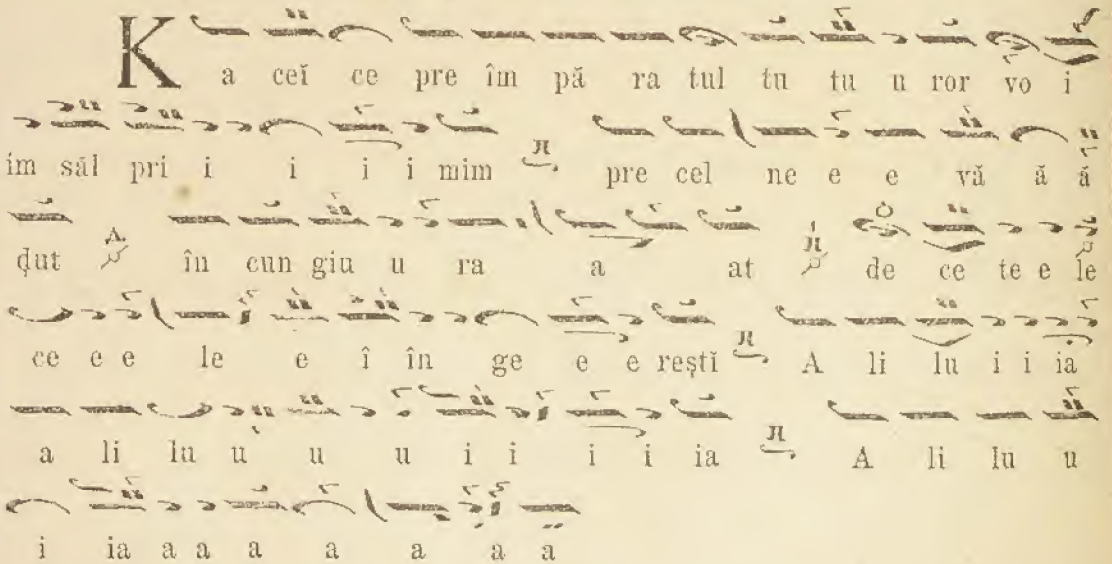 K a ceĭ ce pre îm pă ra tul tu tu u ror vo i
im săl pri i i i i mim pre cel ne e e vă ă ă
dut în cun giu u ra a at de ce te e le
ce e e le e î în ge e e reștĭ A li lu i i ia
a li lu u u u i i i i ia A li lu u
i ia a a a a a a a